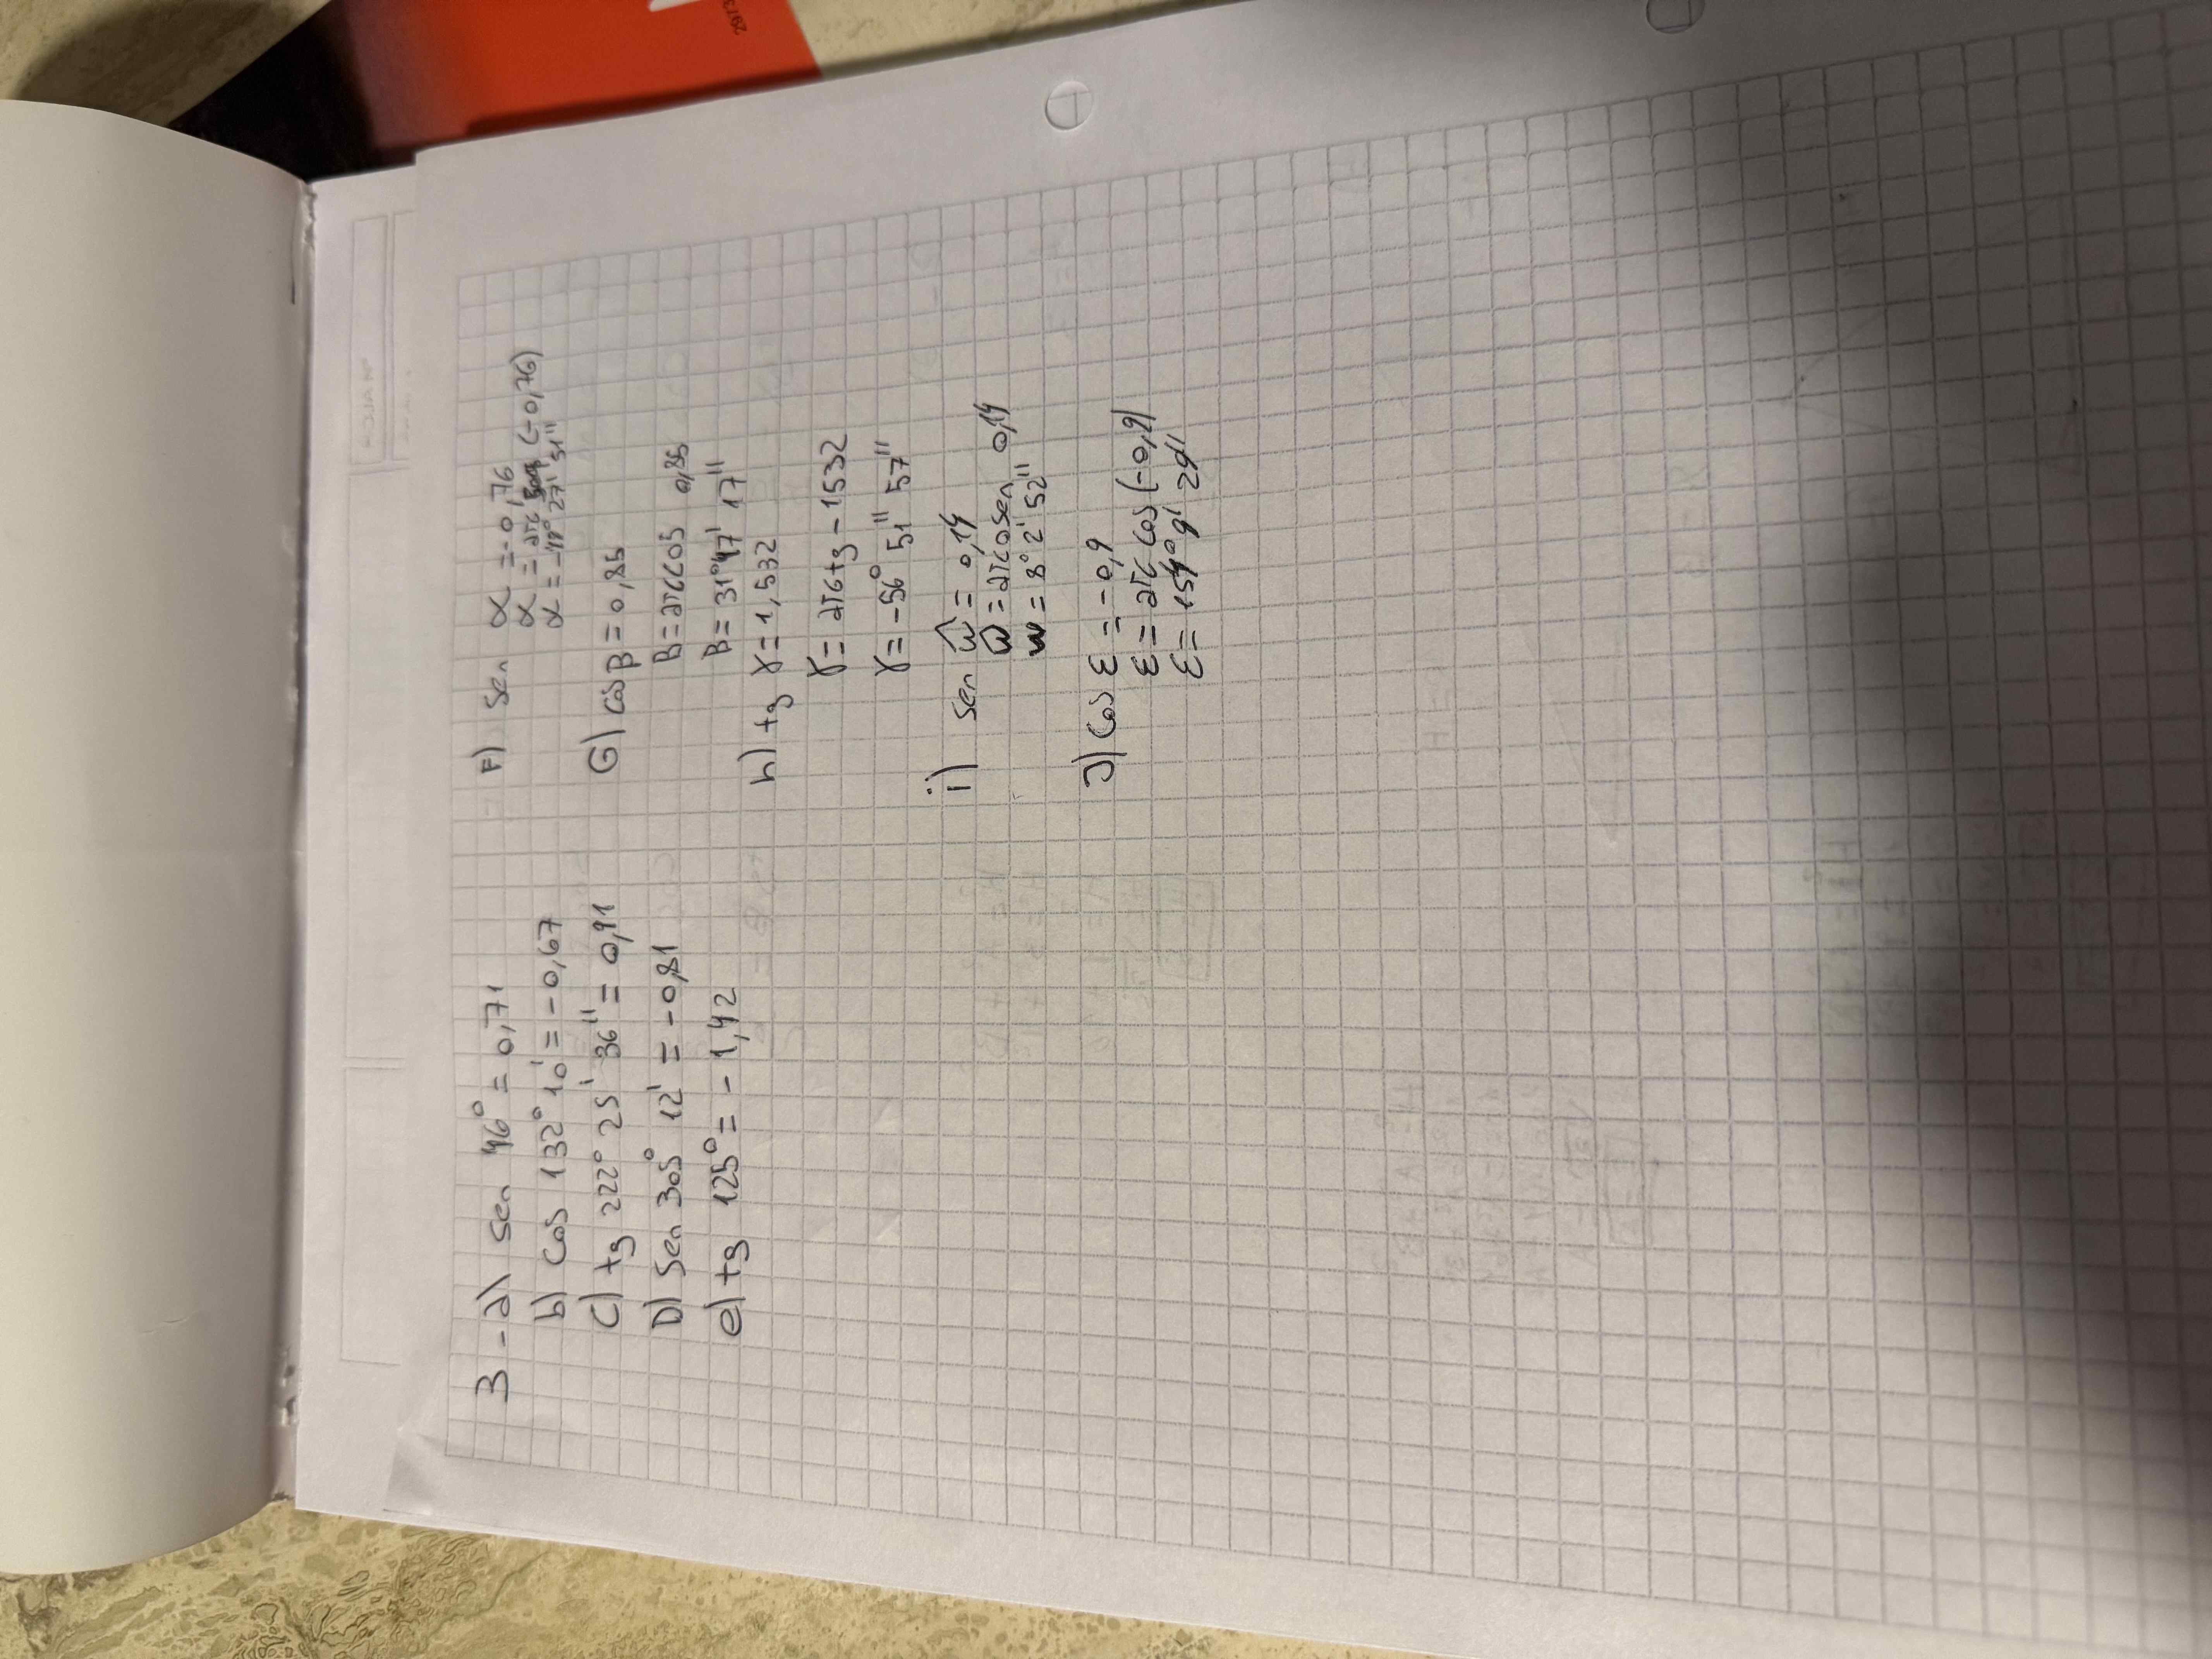 3-a) sen 46° = 0,71
b) cos 132° 10' = -0,67
c) tg 222° 25' 36" = 0,91
D) sen 305° 12' = -0,81
e) tg 125° = -1,42
F) sen α = -0,76
α = arc sen (-0,76)
α = -49° 27' 51"
G) cos β = 0,85
B = arccos 0,85
B = 31° 47' 17"
h) tg γ = 1,532
γ = arctg -1532
γ = -56° 51" 57"
i) sen ŵ = 0,14
ŵ = arcosen 0,14
w = 8° 2' 52"
J) cos ε = -0,9
ε = arc cos (-0,9)
ε = 154° 9' 29"
2973